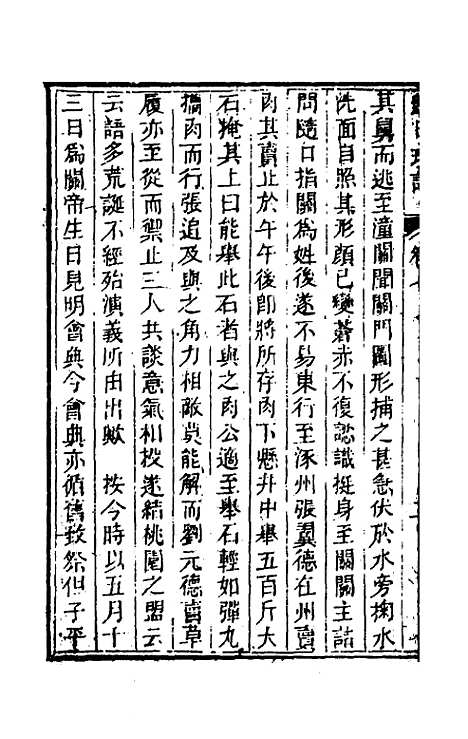 其舅而逃至潼關聞關門圖形捕之甚急伏於水旁掬水
洗面自照其形顏已變蒼赤不復認識挺身至關關主詰
問隨口指關爲姓後遂不易東行至涿州張翼德在州賣
肉其賣止於午午後即將所存肉下懸井中舉五百斤大
石掩其上曰能舉此石者與之肉公適至舉石輕如彈丸
攜肉而行張追及與之角力相敵莫能解而劉元德賣草
履亦至從而禦止三人共談意氣相投遂結桃園之盟云
云語多荒誕不經殆演義所由出歟　按今時以五月十
三日爲關帝生日見明會典今會典亦循舊致祭但子平